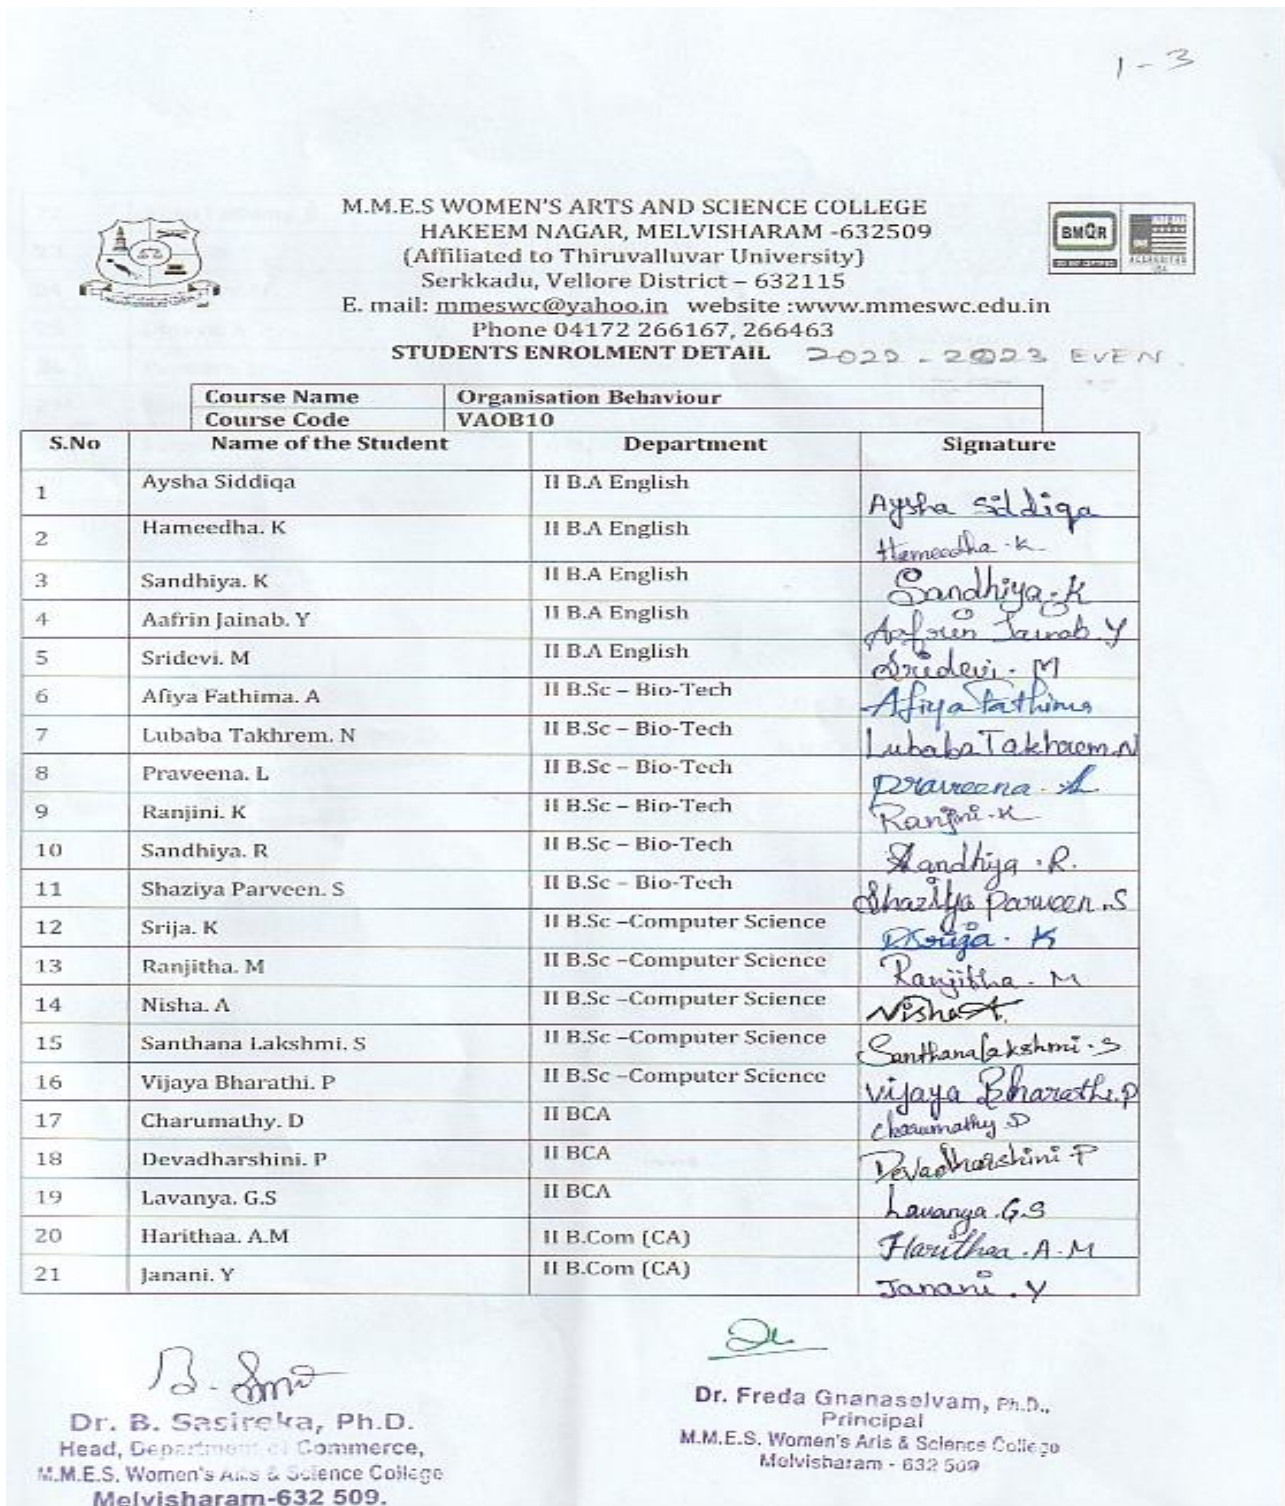 1-3
M.M.E.S WOMEN'S ARTS AND SCIENCE COLLEGE
HAKEEM NAGAR, MELVISHARAM -632509
(Affiliated to Thiruvalluvar University)
Serkkadu, Vellore District – 632115
E. mail: mmeswc@yahoo.in website :www.mmeswc.edu.in
Phone 04172 266167, 266463
BMQR
STUDENTS ENROLMENT DETAIL 2022-2023 EVEN.
Course Name Organisation Behaviour
Course Code VAOB10
S.No Name of the Student Department Signature
1 Aysha Siddiqa II B.A English Aysha Siddiqa
2 Hameedha. K II B.A English Hameedha.K
3 Sandhiya. K II B.A English Sandhiya.K
4 Aafrin Jainab. Y II B.A English Aafrin Jainab.Y
5 Sridevi. M II B.A English Sridevi.M
6 Afiya Fathima. A II B.Sc – Bio-Tech Afiya Fathima
7 Lubaba Takhrem. N II B.Sc – Bio-Tech Lubaba Takhrem.N
8 Praveena. L II B.Sc – Bio-Tech Praveena.
9 Ranjini. K II B.Sc – Bio-Tech Ranjini.K
10 Sandhiya. R II B.Sc – Bio-Tech Sandhiya.R.
11 Shaziya Parveen. S II B.Sc – Bio-Tech Shaziya Parveen.S
12 Srija. K II B.Sc –Computer Science Srija.K
13 Ranjitha. M II B.Sc –Computer Science Ranjitha.M
14 Nisha. A II B.Sc –Computer Science Nisha A.
15 Santhana Lakshmi. S II B.Sc –Computer Science Santhanalakshmi.S
16 Vijaya Bharathi. P II B.Sc –Computer Science Vijaya Bharathi.P
17 Charumathy. D II BCA Charumathy D
18 Devadharshini. P II BCA Devadharshini P
19 Lavanya. G.S II BCA Lavanya.G.S
20 Harithaa. A.M II B.Com (CA) Harithaa.A.M
21 Janani. Y II B.Com (CA) Janani.Y
Dr. B. Sasireka, Ph.D.
Head, Department of Commerce,
M.M.E.S. Women's Arts & Science College
Melvisharam-632 509.
Dr. Freda Gnanaselvam, Ph.D.,
Principal
M.M.E.S. Women's Arts & Science College
Melvisharam - 632 509